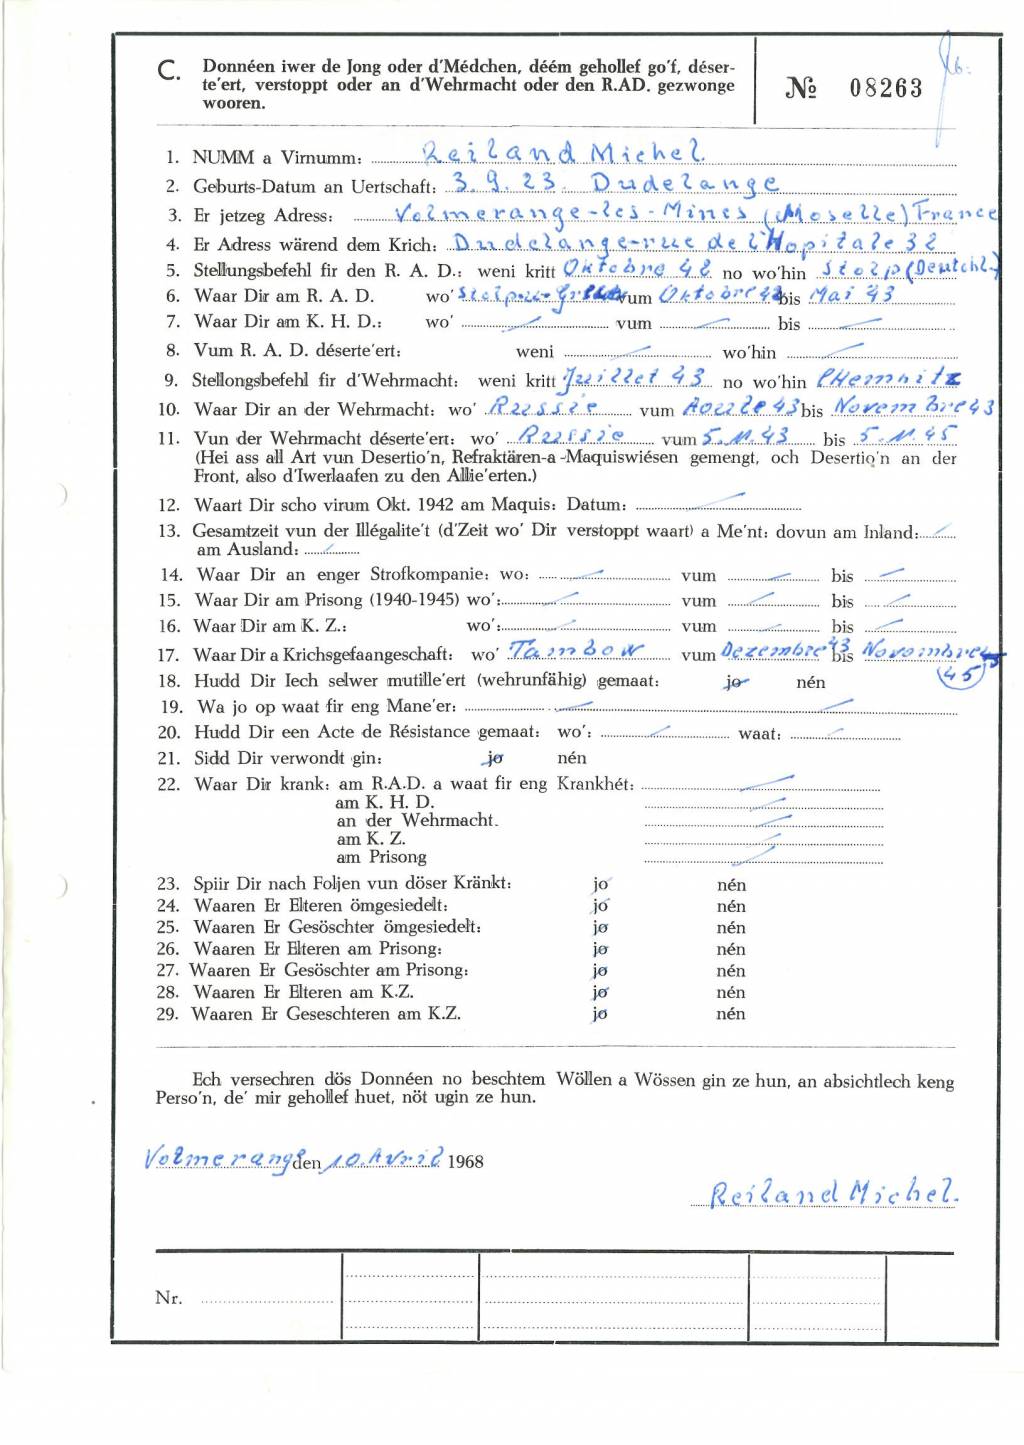 C. Donnéen iwer de Jong oder d'Médchen, déém gehollef go'f, déser-
te'ert, verstoppt oder an d'Wehrmacht oder den R.AD. gezwonge
wooren.
№ 08263
1. NUMM a Virnumm: Reiland Michel
2. Geburts-Datum an Uertschaft: 3.9.23. Dudelange
3. Er jetzeg Adress: Volmerange-les-Mines (Moselle) France
4. Er Adress wärend dem Krich: Dudelange-rue de l'Hopitale 32
5. Stellungsbefehl fir den R. A. D.: weni kritt Oktobre 42 no wo'hin Stolp (Deutchl.)
6. Waar Dir am R. A. D. wo' vum Oktobre 42 bis Mai 43
7. Waar Dir am K. H. D.: wo' vum bis
8. Vum R. A. D. déserte'ert: weni wo'hin
9. Stellongsbefehl fir d'Wehrmacht: weni kritt Juillet 43 no wo'hin CHemnitz
10. Waar Dir an der Wehrmacht: wo' Russie vum 43 bis Novembre 43
11. Vun der Wehrmacht déserte'ert: wo' Russie vum 5.11.43 bis 5.11.45
(Hei ass all Art vun Desertio'n, Refraktären-a-Maquiswiésen gemengt, och Desertio'n an der
Front, also d'Iwerlaafen zu den Allie'erten.)
12. Waart Dir scho virum Okt. 1942 am Maquis: Datum:
13. Gesamtzeit vun der Illégalite't (d'Zeit wo' Dir verstoppt waart) a Me'nt: dovun am Inland:
am Ausland:
14. Waar Dir an enger Strofkompanie: wo: vum bis
15. Waar Dir am Prisong (1940-1945) wo': vum bis
16. Waar Dir am K. Z.: wo': vum bis
17. Waar Dir a Krichsgefaangeschaft: wo' Tambow vum Dezembre 43 bis Novombre 45
18. Hudd Dir Iech selwer mutille'ert (wehrunfähig) gemaat: jo nén
19. Wa jo op waat fir eng Mane'er:
20. Hudd Dir een Acte de Résistance gemaat: wo': waat:
21. Sidd Dir verwondt gin: jo nén
22. Waar Dir krank: am R.A.D. a waat fir eng Krankhét:
am K. H. D.
an der Wehrmacht.
am K. Z.
am Prisong
23. Spiir Dir nach Foljen vun döser Kränkt: jo nén
24. Waaren Er Elteren ömgesiedelt: jo nén
25. Waaren Er Gesöschter ömgesiedelt: jo nén
26. Waaren Er Elteren am Prisong: jo nén
27. Waaren Er Gesöschter am Prisong: jo nén
28. Waaren Er Elteren am K.Z. jo nén
29. Waaren Er Geseschteren am K.Z. jo nén
Ech versechren dös Donnéen no beschtem Wöllen a Wössen gin ze hun, an absichtlech keng
Perso'n, de' mir gehollef huet, nöt ugin ze hun.
Volmerange den 10. Avril 1968
Reiland Michel.
Nr.